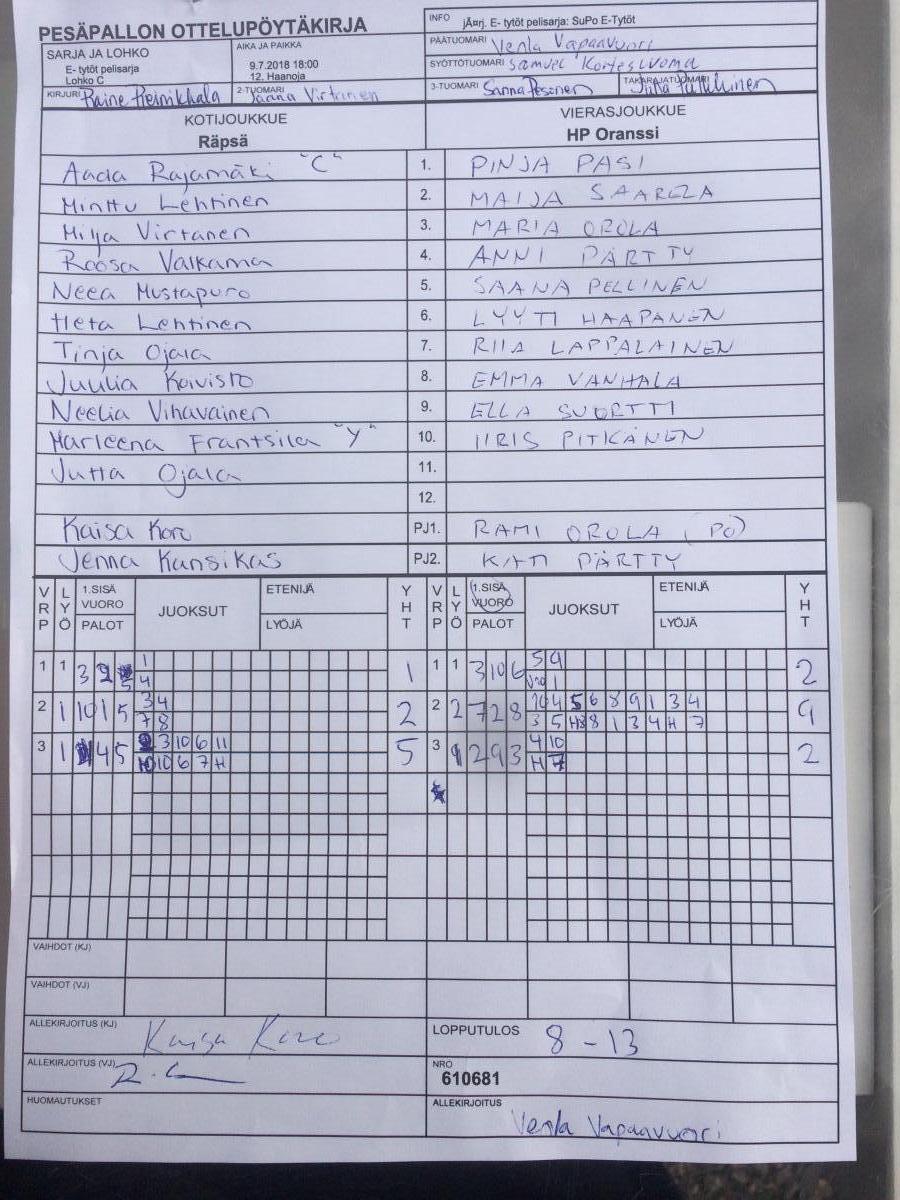 PESÄPALLON OTTELUPÖYTÄKIRJA
INFO jÃ¤rj. E- tytöt pelisarja: SuPo E-Tytöt
SARJA JA LOHKO
E- tytöt pelisarja
Lohko C
AIKA JA PAIKKA
9.7.2018 18:00
12. Haanoja
PÄÄTUOMARI Venla Vapaavuori
SYÖTTÖTUOMARI Samuel Kortesuoma
KIRJURI
2-TUOMARI Janna Virtanen
3-TUOMARI Sanna Pesonen
TAKARAJATUOMARI
KOTIJOUKKUE
Räpsä
VIERASJOUKKUE
HP Oranssi
Aada Rajamäki "C" 1. PINJA PASI
Minttu Lehtinen 2. MAIJA SAARELA
Milja Virtanen 3. MARIA OROLA
Roosa Valkama 4. ANNI PÄRTTY
Neea Mustapuro 5. SAANA PELLINEN
Heta Lehtinen 6. LYYTI HAAPANEN
Tinja Ojala 7. RIIA LAPPALAINEN
Juulia Koivisto 8. EMMA VANHALA
Neelia Vihavainen 9. ELLA SUORTTI
Marleena Frantsila "Y" 10. IIRIS PITKÄNEN
Jutta Ojala 11.
12.
Kaisa Koro PJ1. RAMI OROLA (PÖ)
Jenna Kansikas PJ2. KATI PÄRTTY
VRP LYÖ 1.SISÄ VUORO PALOT JUOKSUT ETENIJÄ LYÖJÄ YHT VRP LYÖ 1.SISÄ VUORO PALOT JUOKSUT ETENIJÄ LYÖJÄ YHT
1 1 3 9 5 1 1 1 1 3 10 6 5 9 2
4 1
2 1 10 1 5 3 4 2 2 2 7 2 8 10 4 5 6 8 9 1 3 4 9
7 8 3 5 H8 8 1 3 4 H 7
3 1 4 5 3 10 6 11 5 3 9 2 9 3 4 10 2
10 6 7 H H 7
VAIHDOT (KJ)
VAIHDOT (VJ)
ALLEKIRJOITUS (KJ) Kaisa Koro
LOPPUTULOS 8 - 13
ALLEKIRJOITUS (VJ)
NRO
610681
HUOMAUTUKSET
ALLEKIRJOITUS
Venla Vapaavuori